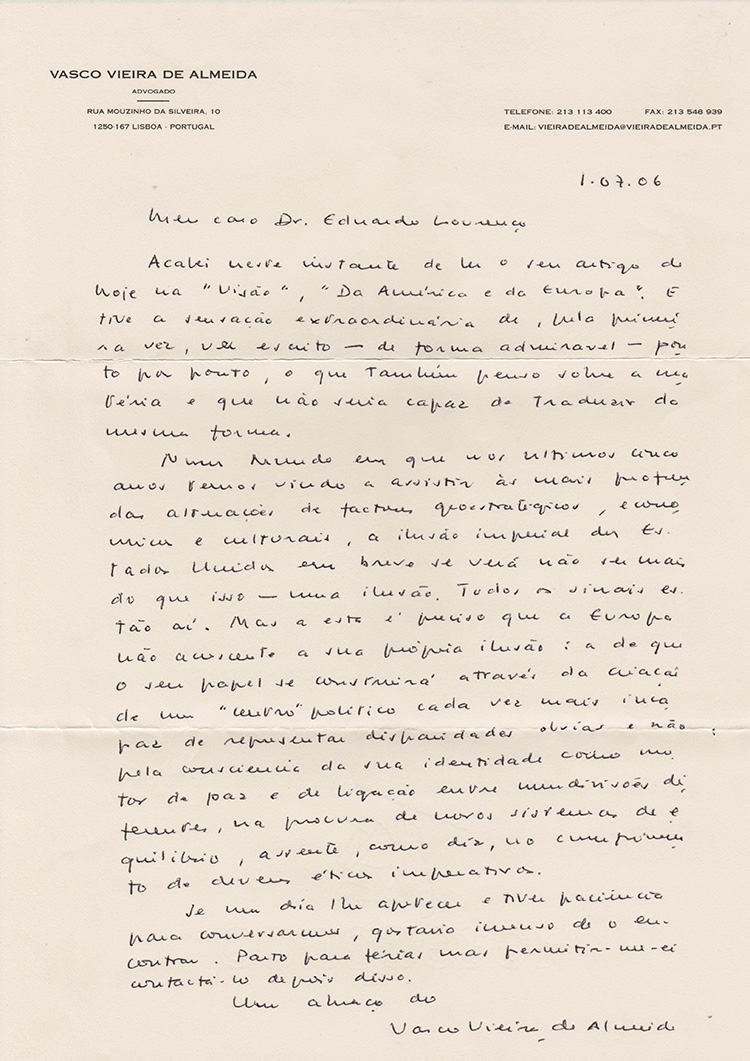 VASCO VIEIRA DE ALMEIDA
ADVOGADO
RUA MOUZINHO DA SILVEIRA, 10
1250-167 LISBOA - PORTUGAL
TELEFONE: 213 113 400 FAX: 213 548 939
E-MAIL: VIEIRADEALMEIDA@VIEIRADEALMEIDA.PT
1.07.06
Meu caro Dr. Eduardo Lourenço
Acabei neste instante de ler o seu artigo de
hoje na "Visão", "Da América e da Europa". E
tive a sensação extraordinária de, pela primei
ra vez, ver escrito — de forma admirável — pon
to por ponto, o que também penso sobre a ma
téria e que não seria capaz de traduzir da
mesma forma.
Num Mundo em que nos últimos cinco
anos temos vindo a assistir às mais profun
das alterações de factores geoestratégicos, econó
micos e culturais, a ilusão imperial dos Es-
tados Unidos em breve se verá não ser mais
do que isso — uma ilusão. Todos os sinais es-
tão aí. Mas a esta é preciso que a Europa
não acrescente a sua própria ilusão: a de que
o seu papel se construirá através da criação
de um "centro" político cada vez mais inca
paz de representar disparidades obvias e não
pela consciencia da sua identidade como mo
tor de paz e de ligação entre mundivisões di
ferentes, na procura de novos sistemas de e
quilibrio, assente, como diz, no cumprimen
to de deveres éticos imperativos.
Se um dia lhe apetecer e tiver paciência
para conversarmos, gostaria imenso de o en-
contrar. Parto para férias mas permitir-me-ei
contactá-lo depois disso.
Um abraço do
Vasco Vieira de Almeida